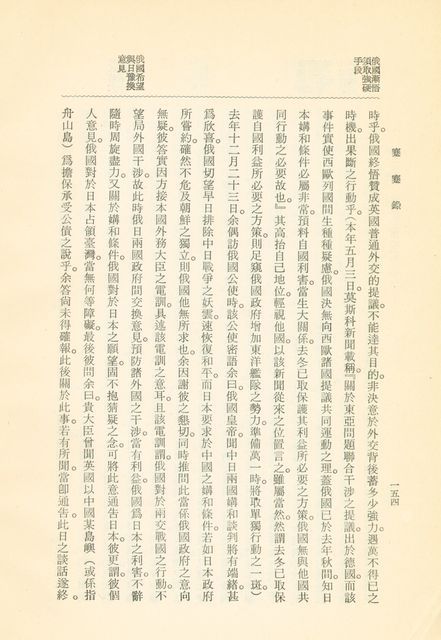 俄國漸悟
須取強硬
手段
俄國希望
與日豫換
意見
蹇蹇錄
一五四
時乎。俄國終悟贊成英國普通外交的提議。不能達其目的。非決意於外交背後。蓄多少強力。遇萬不得已之
時機。出果斷之行動乎。（本年五月三日莫斯科新聞載稱。『關於東亞問題。聯合干涉之提議。出於德國。而該
事件。實使西歐列國間。生種種疑慮。俄國決無向西歐諸國提議共同運動之理。蓋俄國已於去年秋間。知日
本媾和條件。必屬非常。預料自國利害。當生大關係。去冬已取保護其利益所必要之方策。俄國無與他國共
同行動之必要故也。』其高抬自己地位。輕視他國。以該新聞從來之位置言之。雖屬當然。然謂去冬已取保
護自國利益所必要之方策。則足窺俄國政府增加東洋艦隊之勢力。準備萬一時。將取單獨行動之一斑）
去年十二月二十三日。余偶訪俄國公使。時該公使密語余曰。俄國皇帝聞中日兩國媾和談判將有端緒。甚
為欣喜。俄國切望早日排除中日戰爭之妖雲。速恢復和平。而日本要求於中國之媾和條件。若如日本政府
所嘗約。確然不危及朝鮮之獨立。則俄國他無所求也。余因謝彼之懇切。同時推問此當係俄國政府之意向
無疑。彼答實因方接本國外務大臣之電訓。具述該電訓之意耳。且該電訓謂俄國對於兩交戰國之行動。不
望局外國干涉。故此時俄日兩國政府間交換意見。預防諸外國之干涉。當有利益。俄國為日本之利害。不辭
隨時周旋盡力。又關於媾和條件。俄國對於日本之願望。固不抱猜疑之念。可將此意通告日本。彼更謂彼個
人意見。俄國對於日本占領臺灣。當無何等障礙。最後彼問余曰。貴大臣曾聞英國以中國某島嶼（或係指
舟山島）為擔保。承受公債之說乎。余答尚未得確報。此後關於此事。若有所聞。當即通告。此日之談話遂終。